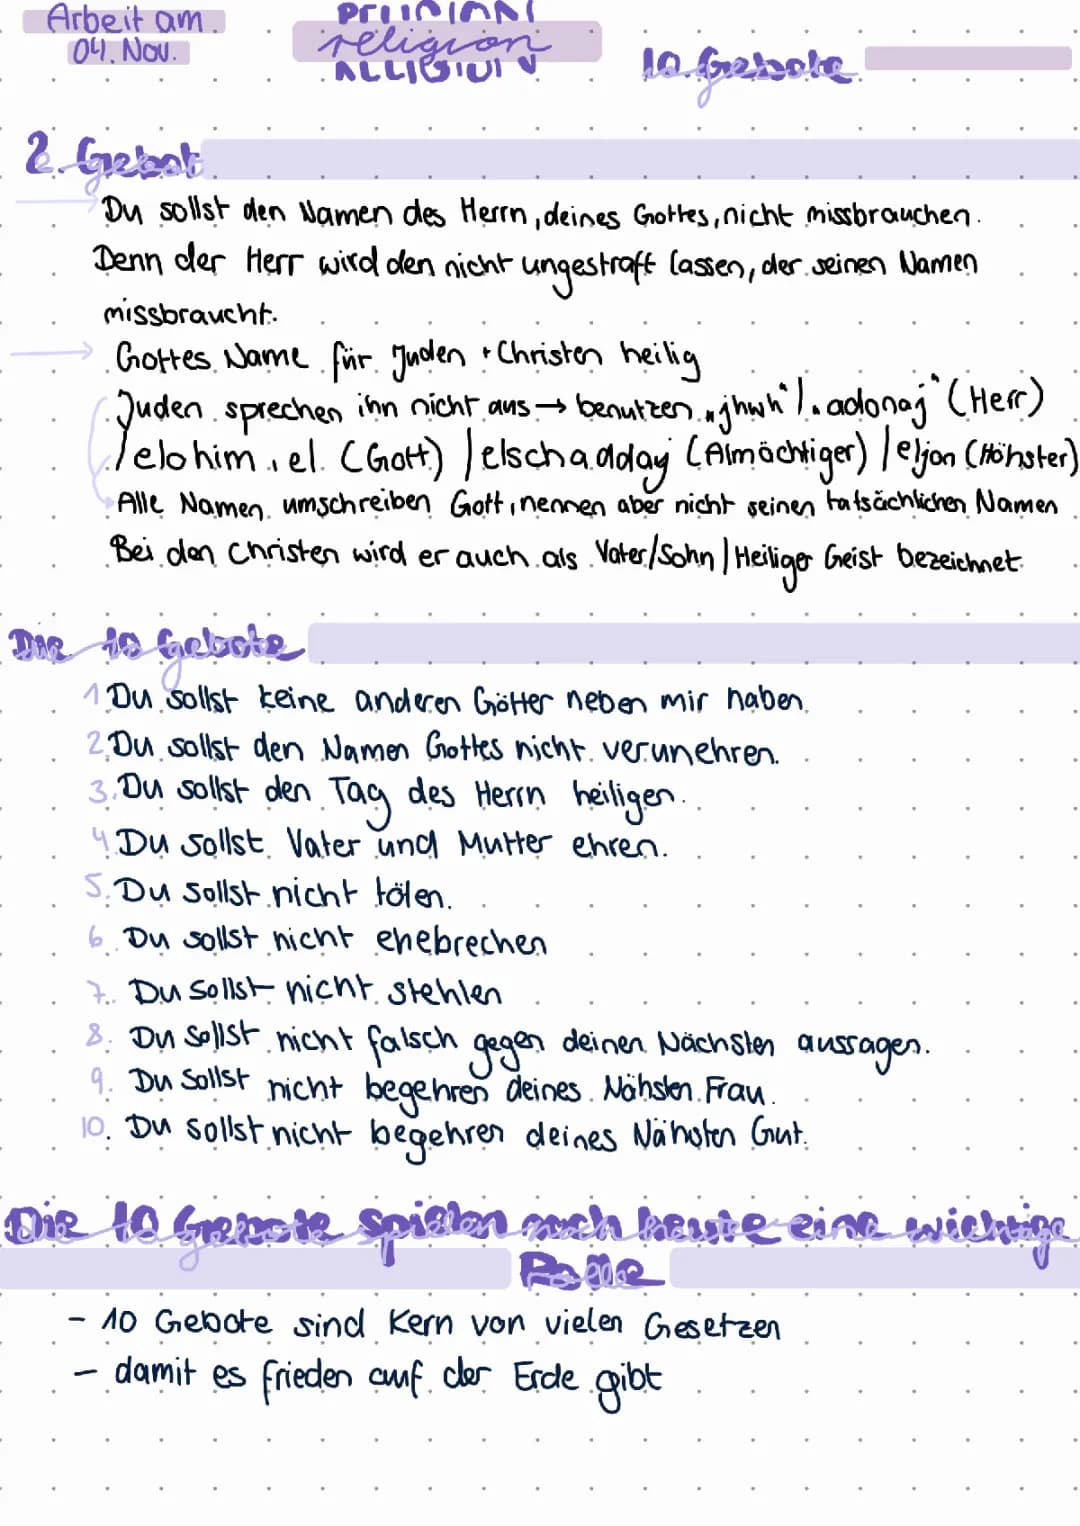 Arbeit am
04. Nov.
religion
10. Gebote
2. Gebot
Du sollst den Namen des Herrn, deines Gottes, nicht missbrauchen.
Denn der Herr wird den nicht ungestraft lassen, der seinen Namen
missbraucht.
Gottes Name für Juden + Christen heilig
Juden sprechen ihn nicht aus → benutzen "jhwh" / "adonaj" (Herr)
/ elohim, el (Gott) / elschadday (Almächtiger) / eljon (Höhster)
Alle Namen umschreiben Gott, nennen aber nicht seinen tatsächlichen Namen
Bei den Christen wird er auch als Vater/Sohn/Heiliger Geist bezeichnet
Die 10 Gebote
1 Du sollst keine anderen Götter neben mir haben.
2. Du sollst den Namen Gottes nicht verunehren.
3. Du sollst den Tag des Herrn heiligen.
4 Du sollst Vater und Mutter ehren.
5. Du sollst nicht töten.
6. Du sollst nicht ehebrechen
7. Du sollst nicht stehlen
8. Du sollst nicht falsch gegen deinen Nächsten aussagen.
9. Du sollst nicht begehren deines Nähsten Frau.
10. Du sollst nicht begehren deines Nähsten Gut.
Die 10 Gebote spielen noch heute eine wichtige
Rolle
- 10 Gebote sind Kern von vielen Gesetzen
- damit es frieden auf der Erde gibt